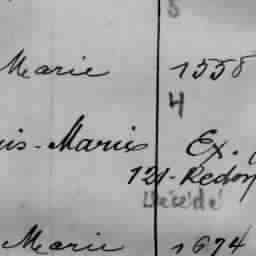 5
Marie 1558
4
is-Marie Ex.
121-Redon
Décédé
Marie 1674